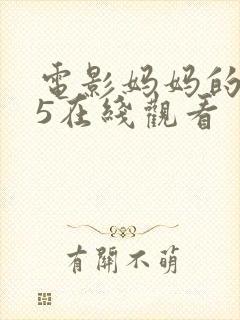 電影妈妈的
5在綫觀看
有關不萌